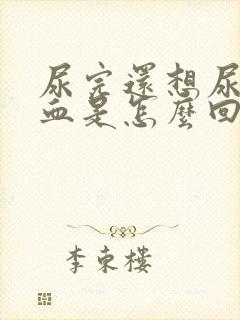 尿完還想尿
血是怎麼回
李東樓